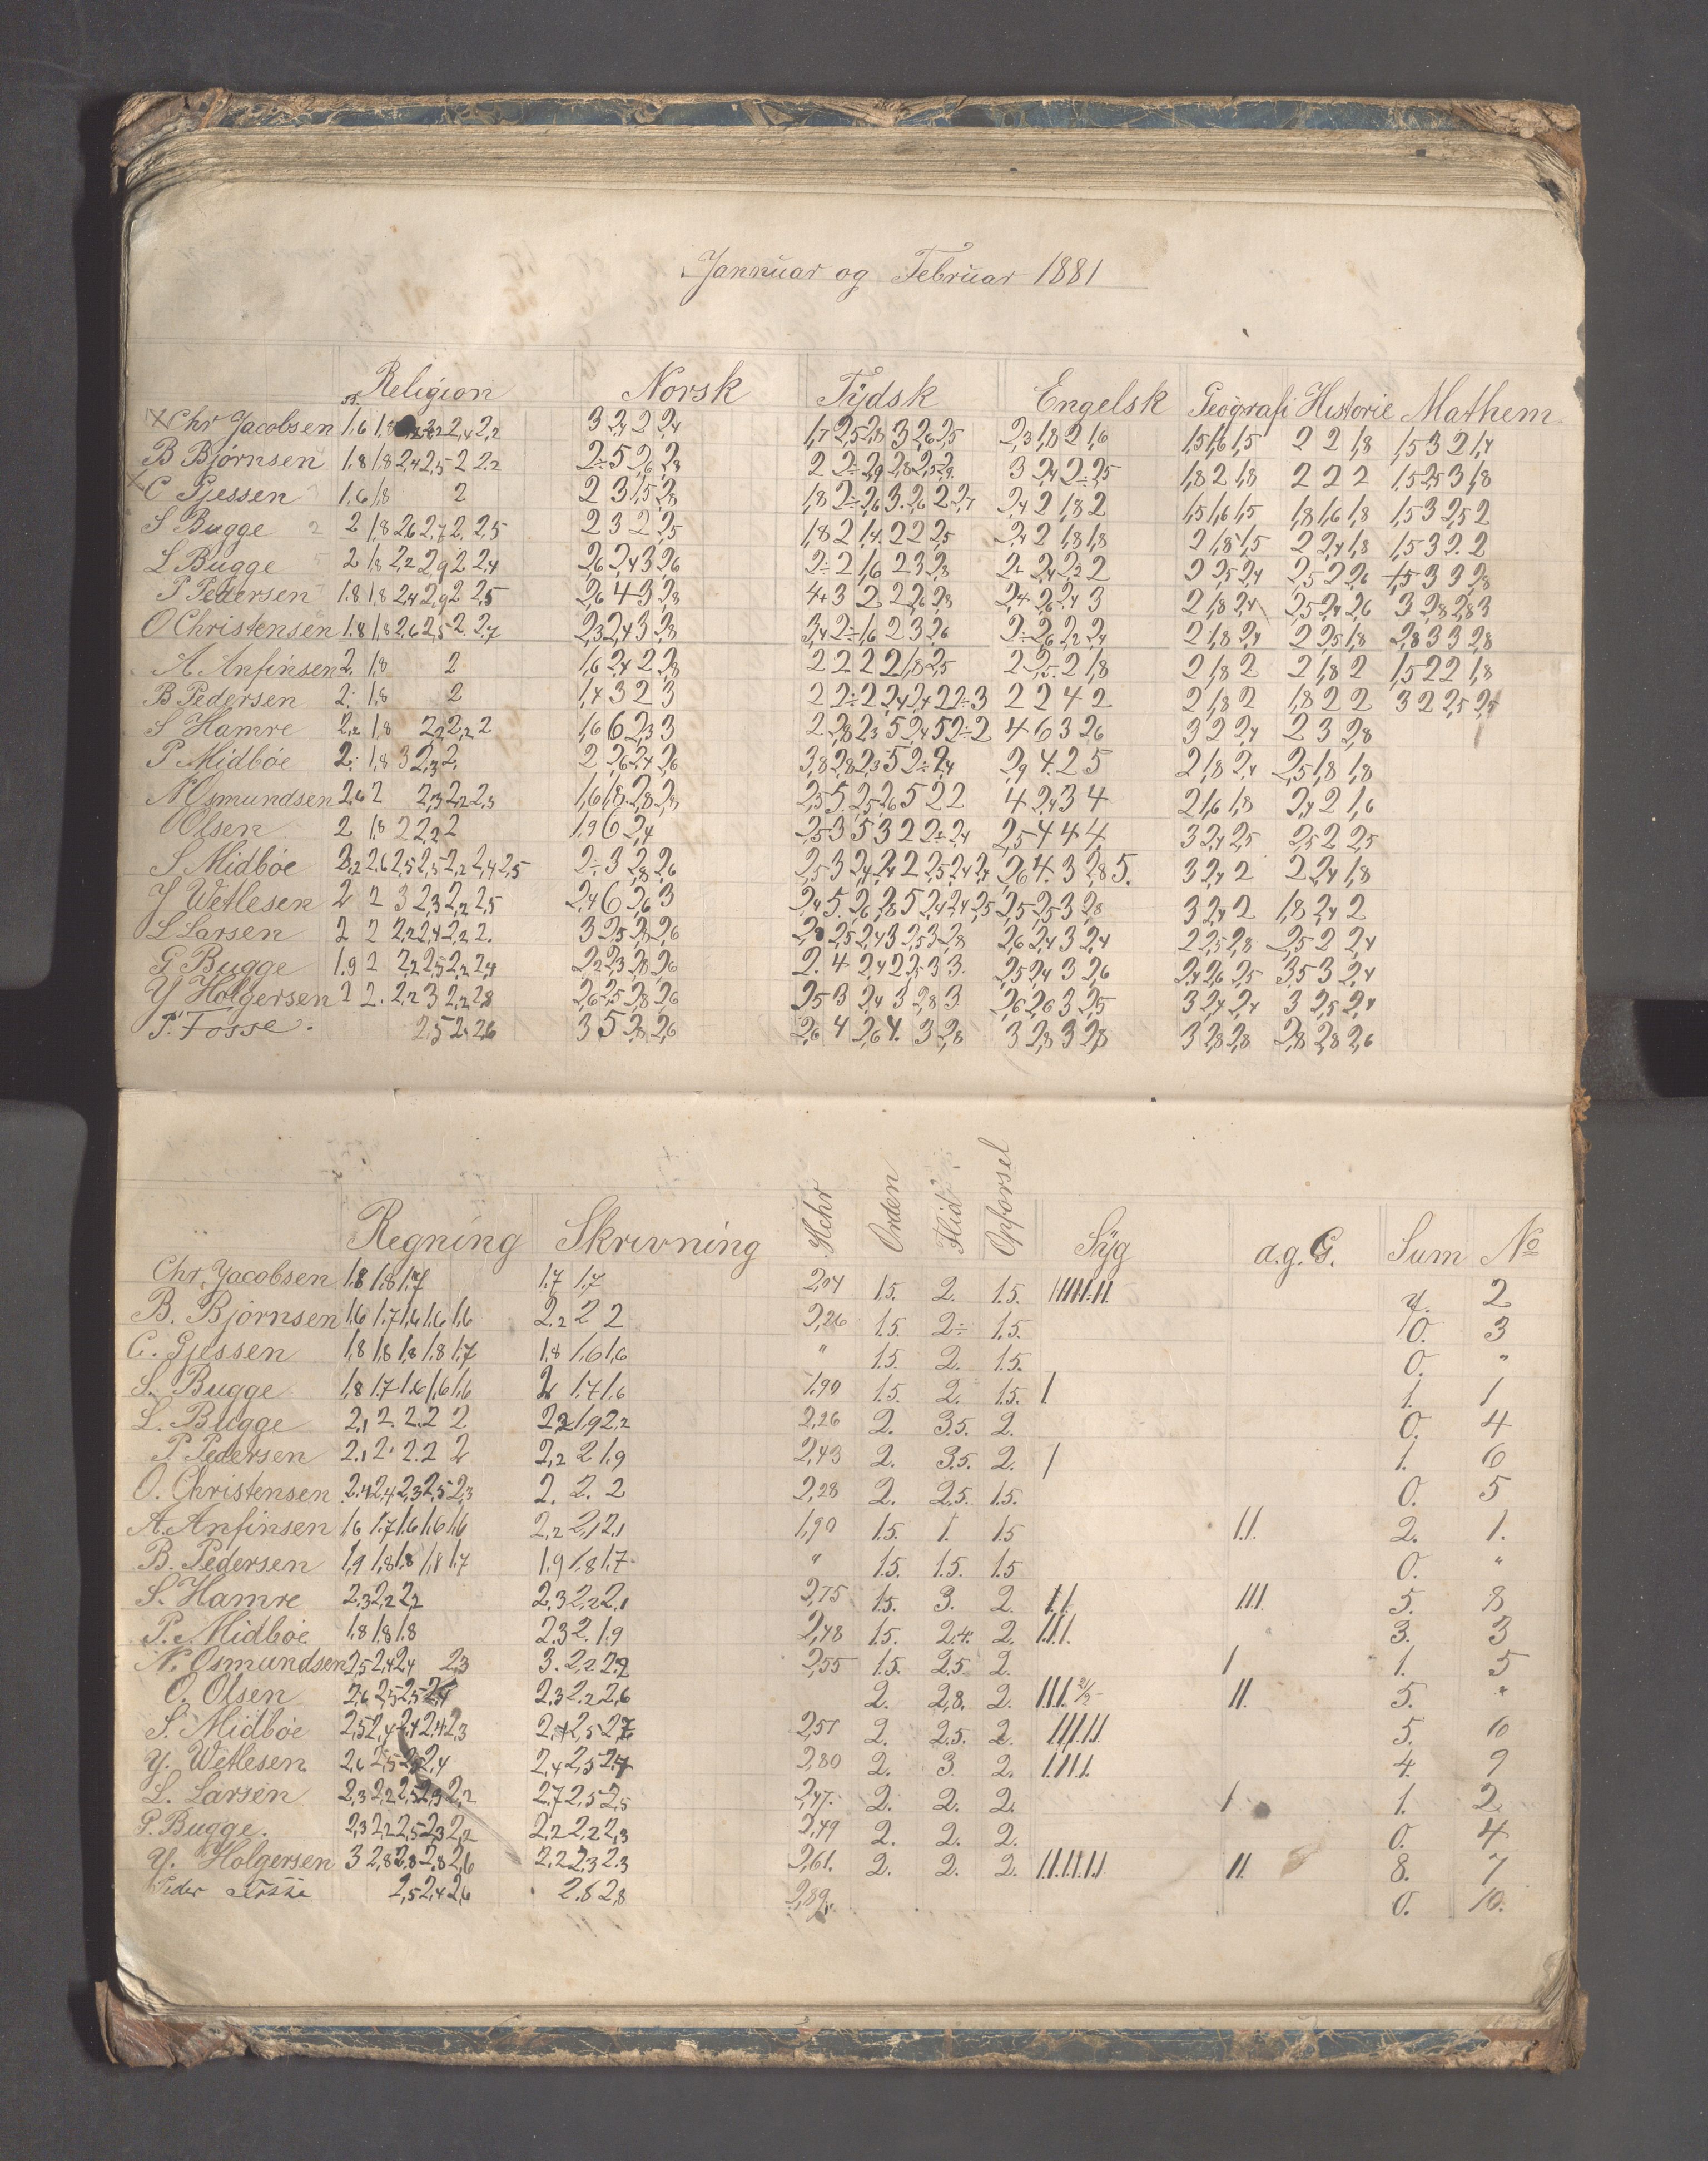 Jannuar og Februar 1881
Religion Norsk Tydsk Engelsk Geografi Historie Mathem
Chr Jacobsen 1,6 1,8 2,4 2,2 3 2,4 2 2,4 1,7 2,5 2,8 3 2,6 2,5 2,3 1,8 2 1,6 1,5 1,6 1,5 2 2 1,8 1,5 3 2 1,4
B Bjornsen 1,8 1,8 2,4 2,5 2 2,2 2÷ 5 2,6 2,3 2 2÷ 2,9 2,8 2,5 2,9 3 2,4 2÷ 2,5 1,8 2 1,8 2 2 2 1,5 2,5 3 1,8
C Gjessen 1,6 1,8 2 2 3 2,5 2,8 1,8 2÷ 2,6 3. 2,6 2 2,7 2,4 2 1,8 2 1,5 1,6 1,5 1,8 1,6 1,8 1,5 3 2,5 2
S Bugge 2 1,8 2,6 2,7 2. 2,5 2 3 2 2,5 1,8 2 1,4. 2 2 2,5 2,4 2 1,8 1,8 2 1,8 1,5 2 2,4 1,8 1,5 3 2. 2
L Bugge 2 1,8 2,2 2,9 2 2,4 2,6 2,4 3 2,6 2÷ 2 1,6 2 3 2,8 2÷ 2,4 2,2 2 2 2,5 2,4 2,5 2 2,6 3 3 2,8
P Pedersen 1.8 1,8 2,4 2,9 2 2,5 2,6 4 3 2,8 4+ 3 2 2 2,6 2,8 2,4 2,6 2,4 3 2 1,8 2,4 2,5 2,4 2,6 3 2,8 2,8 3
O Christensen 1.8 1,8 2,6 2,5 2. 2,7 2,3 2,4 3 2,8 3,4 2÷ 1,6 2 3 2,6 2÷ 2,6 2,2 2,4 2 1,8 2,4 2 2,5 1,8 2,8 3 3 2,8
A. Anfinsen 2. 1,8 2 1,6 2,4 2 2,8 2 2 2 2 1,8 2,5 2 2,5. 2 1,8 2 1,8 2 2 1,8 2 1,5 2 2 1,8
B Pedersen 2. 1,8 2 1,4 3 2 3 2 2÷ 2 2,4 2,4 2 2÷ 3 2 2 4 2 2 1,8 2 1,8 2 2 3 2 2,5 2,5
S Hamre 2,2 1,8 2,2 2,2 2 1,6 6 2,3 3 2 2,8 2,3 5 2,4 5 2÷ 2 4 6 3 2,6 3 2 2,4 2 3 2,8
P Midbøe 2. 1,8 3 2,3 2. 2 2,6 2,4 2,6 3,8 2,8 2,3 5 2÷ 2,4 2,9 4. 2 5 2 1,8 2,4 2,5 1,8 1,8
N Osmundsen 2,6 2 2,3 2,2 2,3 1,6 1,8. 2,8 2,8 2,5 5. 2,5 2,6 5 2 2 4 2,4 3 4 2 1,6 1,8 2,4 2 1,6
O Olsen 2 1,8 2 2,2 2 1,9 6 2,4 2,5 3 5 3 2 2÷ 2,4 2,5 4 4 4. 3 2,4 2,5 2,5 2 2,5
S Midbøe 2,2 2,6 2,5 2,5 2,2 2,4 2,5 2÷ 3 2,8 2,6 2,5 3 2,4 2,4 2 2,5 2,4 2,4 2,6 4. 3 2,8 5. 3 2,4 2 2 2,4 1,8
Y Wetlesen 2 2 3 2,3 2,2 2,5 2,4 6 2,6 3 2,4 5. 2,6 2,8 5 2,4 2,4 2,5 2,5 2,5 3 2,8 3 2,4 2 1,8 2,4 2
L Larsen 2 2 2,2 2,4 2,2 2. 3 2,5 2,8 2,6 2,5 2,4 3 2,5 3 2,8 2,6 2,4 3 2,4 2 2,5 2,8 2,5 2 2,4
G Bugge 1.9 2 2,2 2,5 2,2 2,4 2,2 2,3 2,8 2,6 2. 4 2,4 2 2,5 3 3. 2,5 2,4 3 2,6 2,4 2,6 2,5 3,5 3 2,4
Y Holgersen 2 2. 2,2 3 2,2 2,8 2,6 2,5 2,8 2,6 2,5 3 2,4 3 2,8 3 2,6 2,6 3 2,5 3 2,4 2,4 3 2,5 2,4
P. Fosse. 2,5 2. 2,6 3 5 2,8 2,6 2,6 4 2,6 4. 3 2,8 3 2,8 3 2,8 3 2,8 2,8 2,8 2,8 2,6
Regning Skrivning Hchr Orden Flid Opforsel Syg a.g.G. Sum No
Chr. Jacobsen 1.8 1.8 1.7 1.7 1,7 2,04 1.5. 2. 1.5. 7. 2
B. Bjornsen 1.6 1.7 1,6 1,6 1,6 2.2 2 2 2,26 1.5. 2÷ 1.5. 0. 3
C. Gjessen 1,8 1,8 1,8 1,8 1,7 1,8 1,6 1,6 " 1.5. 2. 1.5. 0. "
S. Bugge 1,8 1.7 1.6 1,6 1,6 2 1.7 1,6 1,90 1.5. 2. 1.5. / 1. 1
L. Bugge 2,1 2. 2.2 2 2,2 1,9 2,2 2,26 2. 3.5. 2. 0. 4
P Pedersen 2.1 2. 2.2 2 2,2 2 1.9 2,43 2. 3.5. 2. / 1. 6
O. Christensen 2.4 2,4 2,3 2,5 2,3 2. 2. 2 2,28 2. 2.5. 1.5. 0. 5
A. Anfinsen 1.6 1.7 1.6 1.6 1.6 2,2 2,1 2,1 1,90 1.5. 1. 1.5 11. 2. 1.
B. Pedersen 1,9 1,8 1.8 1,8 1.7 1.9 1,8 1,7. " 1.5. 1.5. 1.5 0. "
S. Hamre 2.3 2,2 2,2 2,3 2,2 2,1 2,75 1.5. 3. 2. 11 111. 5. 8
P. Midbøe 1.8 1.8 1.8 2.3 2. 1.9 2,48 1.5. 2.4. 2. 111. 3. 3
N. Osmundsen 2,5 2,4 2,4 2,3 3. 2,2 2,2 2,55 1.5. 2.5. 2. 1 1. 5
O. Olsen 2,6 2,5 2,5 2,4 2,3 2,2 2,6 2. 2,8. 2. 111 11. 5. "
S. Midbøe 2,5 2,4 2,4 2,4 2,3 2,4 2,5 2,7 2,57 2. 2.5. 2. 11111. 5. 6
Y. Wetlesen 2,6 2,5 2,5 2,4 2,4 2,5 2,4 2,80 2. 3. 2. 1111. 4. 9
L. Larsen 2,3 2,2 2,5 2,3 2,2 2,7 2,5 2,5 2,47. 2. 2. 2. 1 1. 2
G. Bugge. 2,3 2,2 2,5 2,3 2,2 2,2 2,2 2,3 2,49 2. 2. 2. 0. 4
Y. Holgersen 3 2,8 2,8 2,8 2,6 2,2 2,3 2.3 2,61. 2. 2. 2. 111111 11. 8. 7
Peder Fosse 2,5 2,4 2,6 2.8 2,8 2,89. 0. 10.